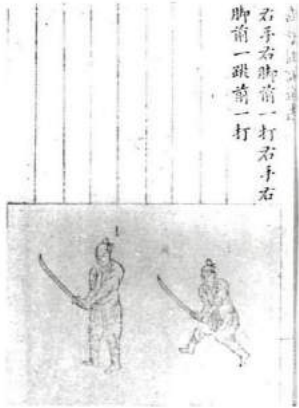 右手右脚前一打右手右
脚前一跳前一打